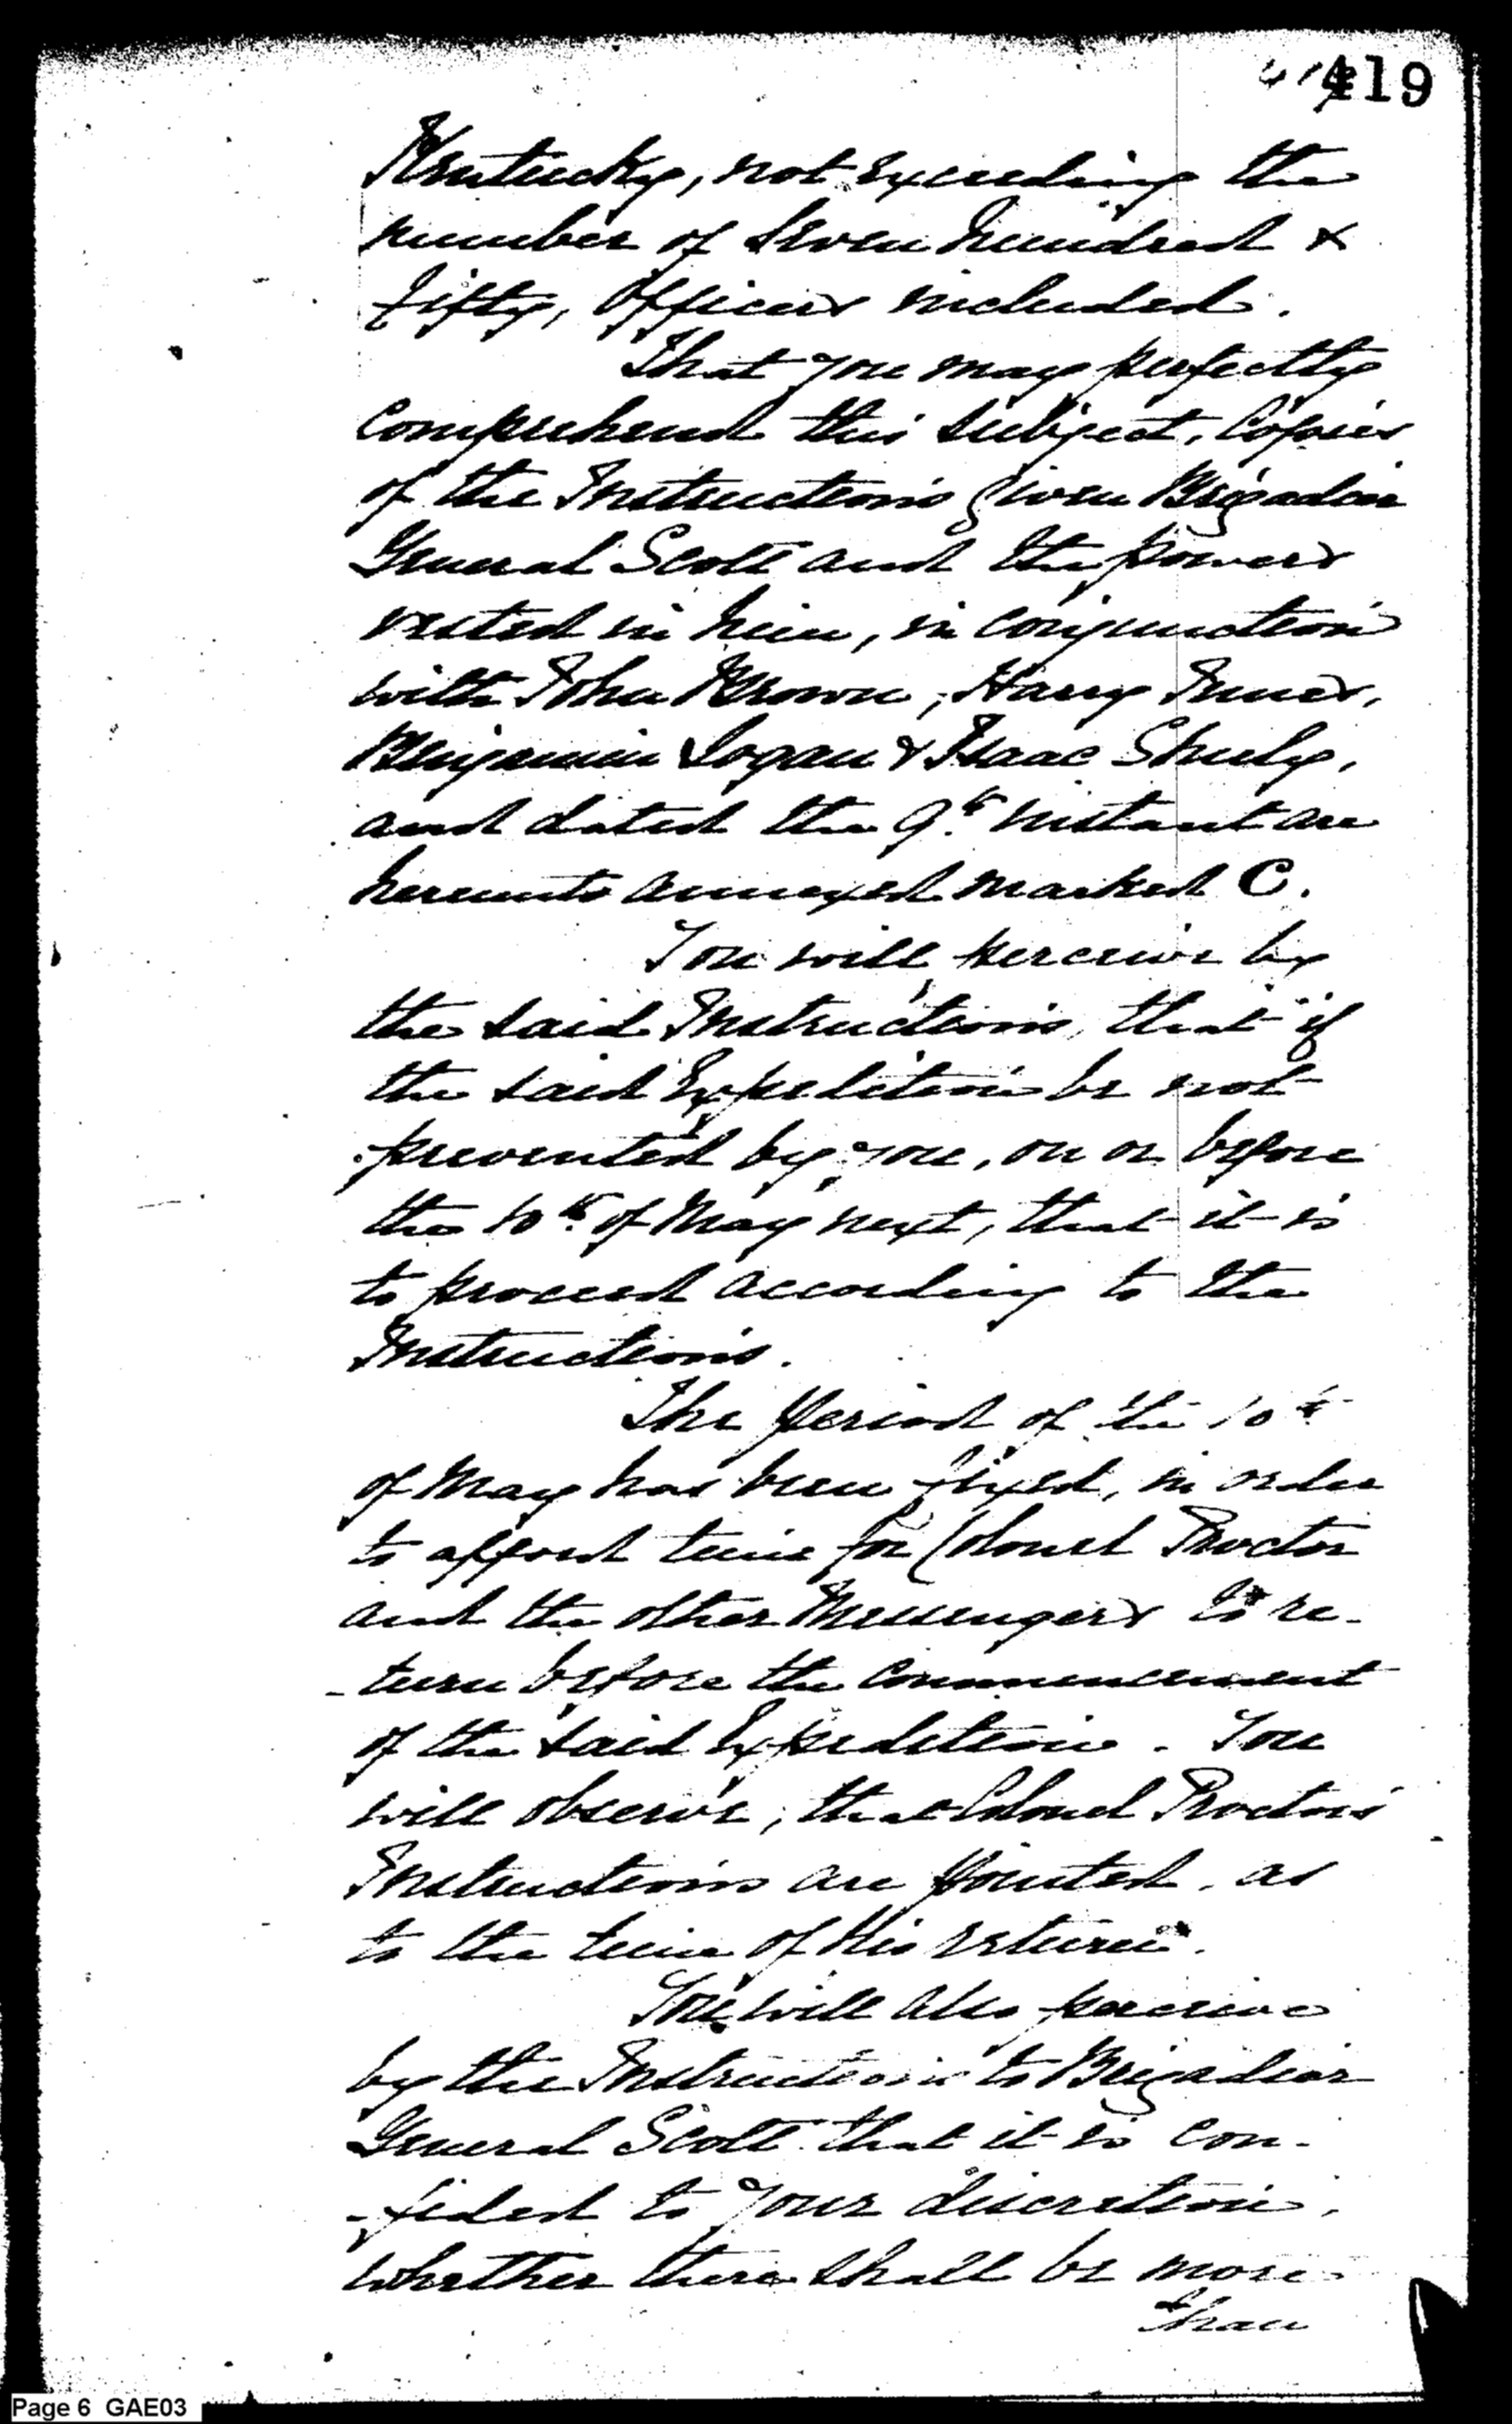 419
Kentucky, not exceeding the
number of Seven hundred &
fifty, Officers included.
That you may perfectly
Comprehend this subject, Copies
of the Instructions given Brigadier
General Scott and the powers
vested in him, in conjunction
with John Brown, Harry Innes,
Benjamin Logan & Isaac Shelby,
and dated the 9th. instant are
hereunto annexed marked C.
You will perceive by
the said Instructions, that if
the said Expedition be not
prevented by you, on or before
the 10th. of May next, that it is
to proceed according to the
Instructions.
The Period of the 10th
of May has been fixed, in order
to afford time for Colonel Proctor
and the other Messengers to re-
-turn before the Commencement
of the said Expedition. You
will observe, that Colonel Proctors
Instructions are pointed, as
to the time of His return.
You will also perceive
by the Instructions to Brigadier
General Scott that it is con-
-fided to Your discretion,
whether there shall be more
than
Page 6 GAE03